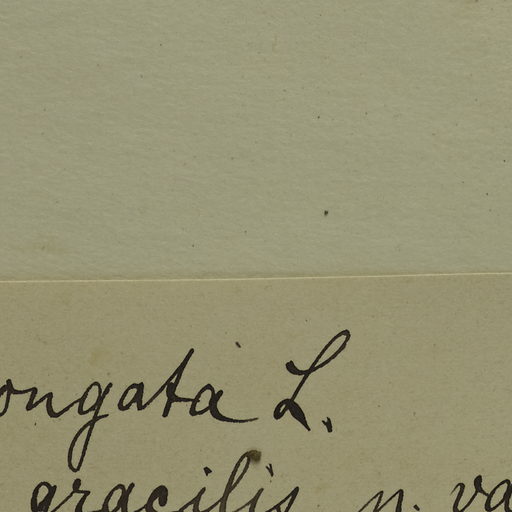 ongata L.
gracilis n. va